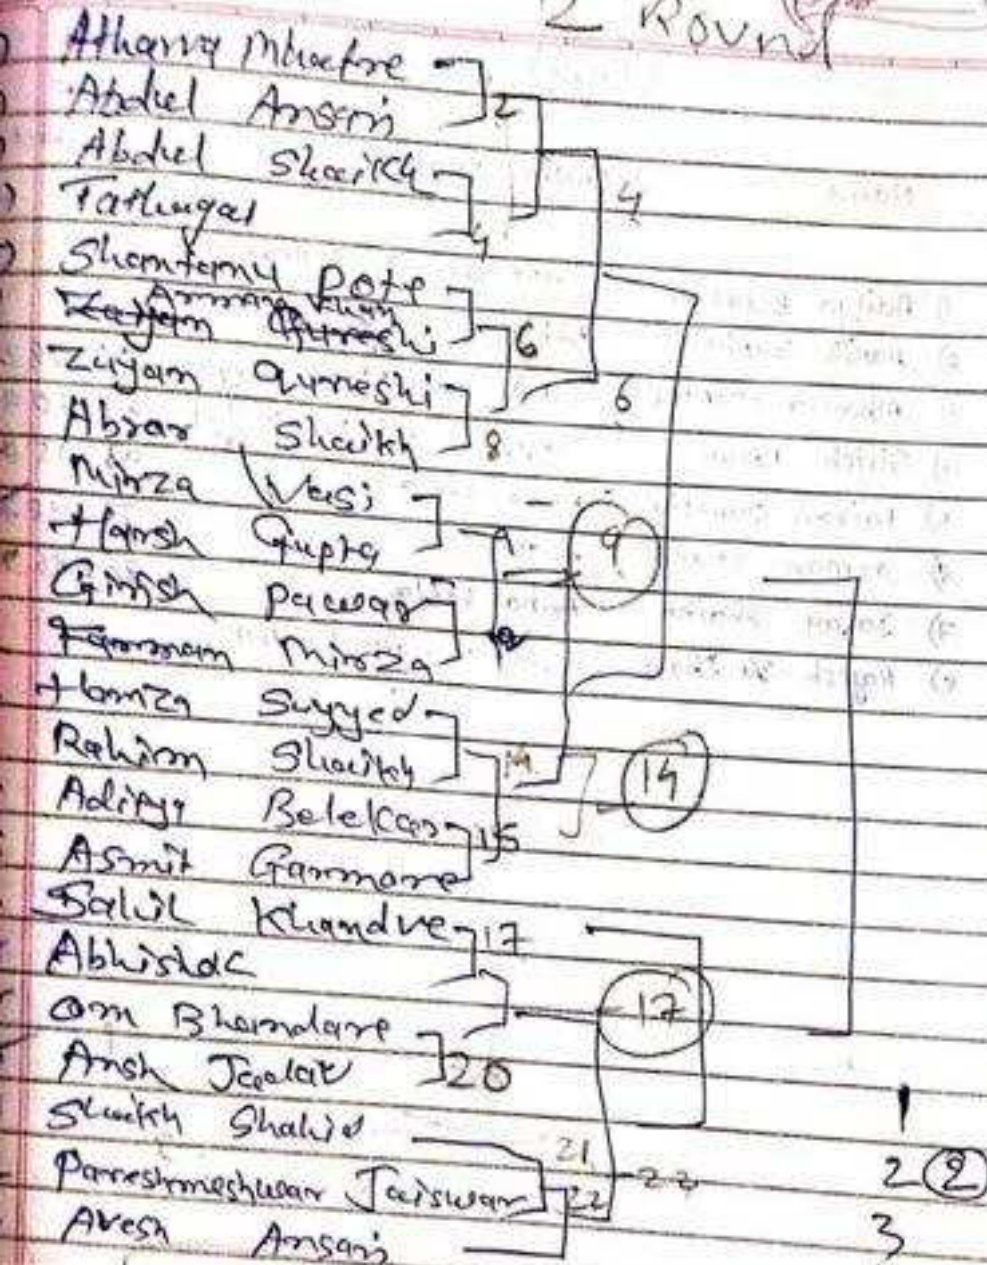 2 Round
Atharva Mhaetre 2
Abdul Ansari
Abdul Shaikh 4
Tathugat 4
Shantanu Pote
Armaan Khan
Zaiyam Qureshi 6
Ziyam Qureshi 6
Abrar Shaikh 8
Mirza Wasi -
Harsh Gupta 9 9
Girish Pacwar
Mirza
Hamza Sayyed
Rahim Shaikh 14 14
Aditya Belekar 15
Asmit Garmare
Salil Khandve 17
Abhishak
Om Bhandare 17
Ansh Jadav 20
Shaikh Shahid 1
21
Pareshmeshwar Jaiswar 22 22 2 2
Avesh Ansari 3